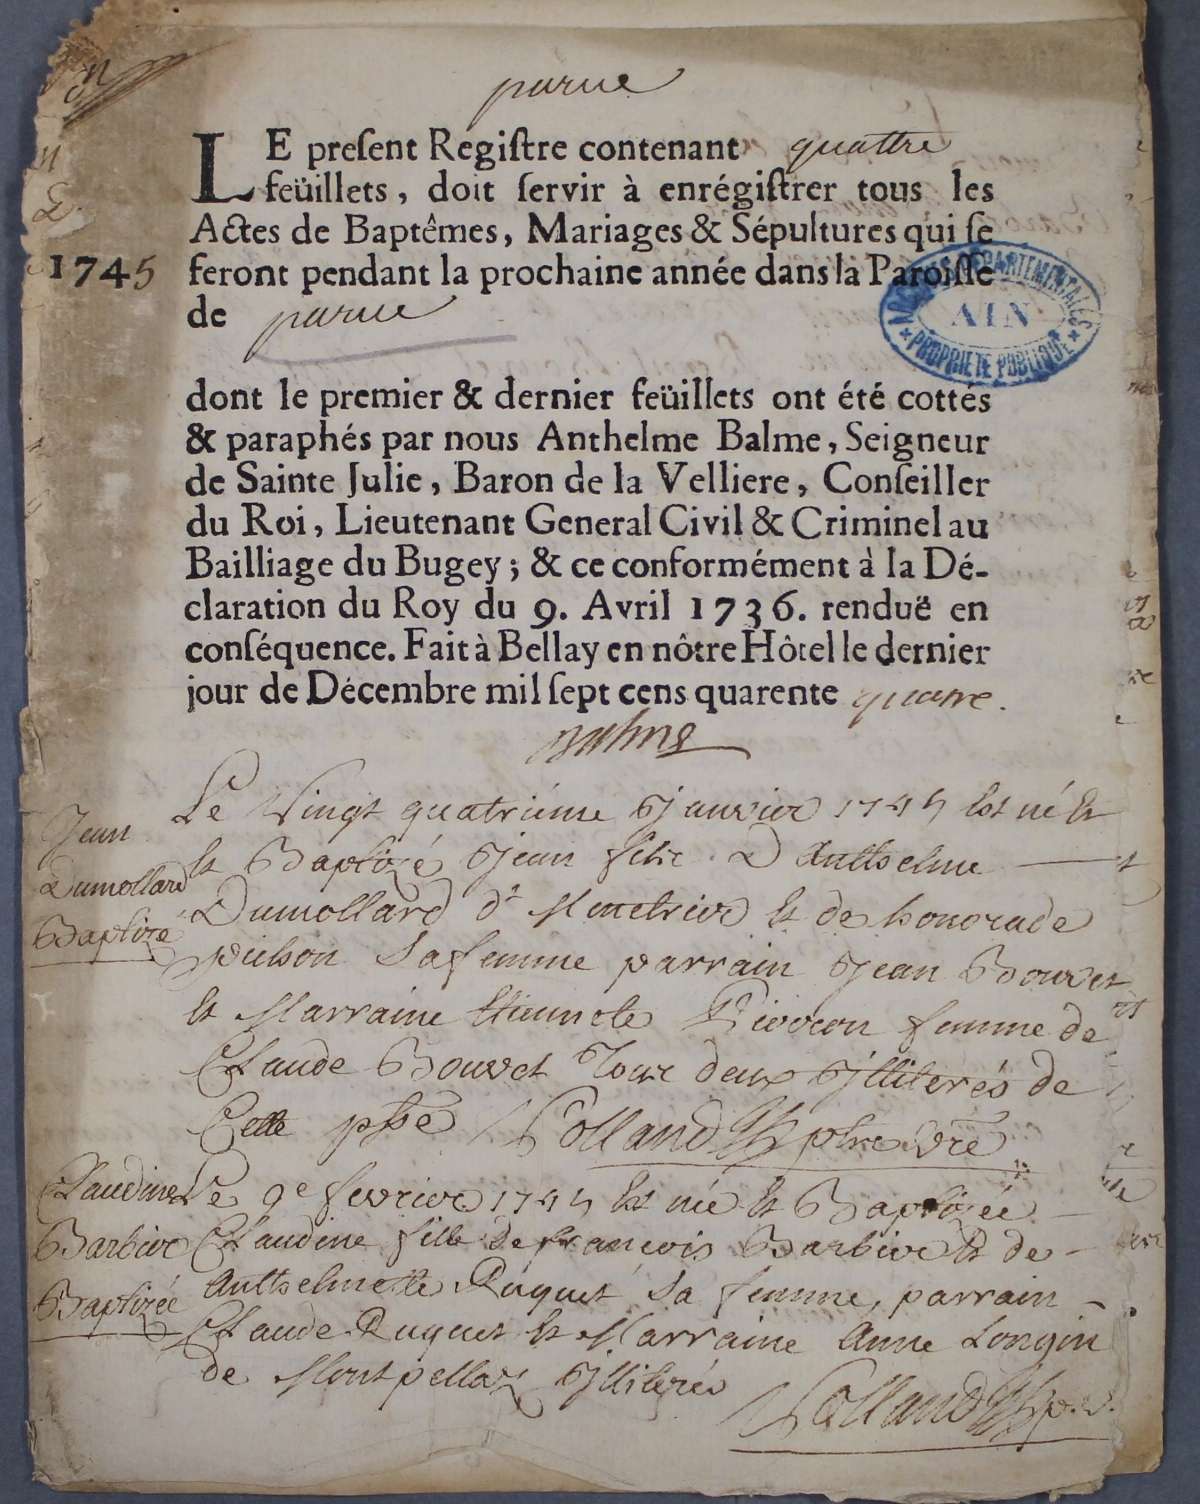 parue
LE preſent Regiſtre contenant quattre
feüillets, doit ſervir à enrégiſtrer tous les
Actes de Baptêmes, Mariages & Sépultures qui ſe
1745 feront pendant la prochaine année dans la Paroiſſe
de parue
ARCHIVES DÉPARTEMENTALES
AIN
PROPRIÉTÉ PUBLIQUE
dont le premier & dernier feüillets ont été cottés
& paraphés par nous Anthelme Balme, Seigneur
de Sainte Julie, Baron de la Velliere, Conſeiller
du Roi, Lieutenant General Civil & Criminel au
Bailliage du Bugey; & ce conformément à la Dé-
claration du Roy du 9. Avril 1736. renduë en
conſéquence. Fait à Bellay en nôtre Hôtel le dernier
jour de Décembre mil ſept cens quarente quatre.
Balme
Jean
Dumollard
Baptizé
Le Vingt quatriéme Janvier 1745 Est né Et
Et Baptizé Jean fils D Anthelme
Dumollard dt Et de honorade
sa femme parrain Jean Bouvet
Et Marraine femme de
Claude Bouvet Tous deux Jlliterés de
Cette psse Rolland ptre vre
Claudine
Barbier
Baptizée
Le 9e fevrier 1745 Est née Et Baptizée
Claudine fille de francois Barbier Et de
Anthelmette Ruquet sa femme, parrain
Claude Ruquet Et Marraine Anne Longin
de Montpellaz Jlliterés
Rolland p. v.